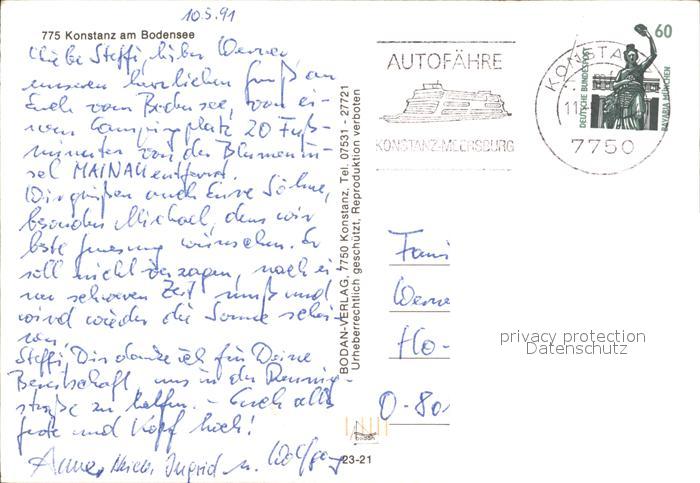 10.5.91
775 Konstanz am Bodensee
Liebe Steffi, lieber Werner
unseren herzlichen Gruß an
Euch vom Bodensee, von ei-
nem Campingplatz 20 Fuß-
minuten von der Blumenin-
sel MAINAU entfernt.
Wir grüßen auch Eure Söhne,
besonders Michael, dem wir
beste Genesung wünschen. Er
soll nicht verzagen, nach ei-
ner schweren Zeit muß und
wird wieder die Sonne schei-
nen.
Steffi, Dir danke ich für Deine
Bereitschaft, uns in der
straße zu helfen. - Euch alles
Gute und Kopf hoch!
Ingrid u. Wolfgang
BODAN-VERLAG, 7750 Konstanz, Tel. 07531 - 27721
Urheberrechtlich geschützt, Reproduktion verboten
bodan
23-21
AUTOFÄHRE
KONSTANZ-MEERSBURG
KONSTA
11
7750
60
DEUTSCHE BUNDESPOST
BAVARIA MÜNCHEN
Fami
Werne
Ho-
O-80
privacy protection
Datenschutz